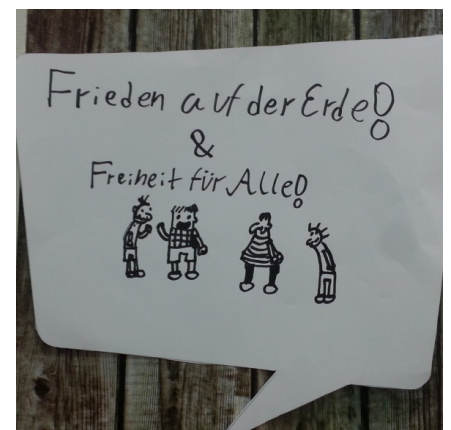 Frieden auf der Erde!
&
Freiheit für Alle!